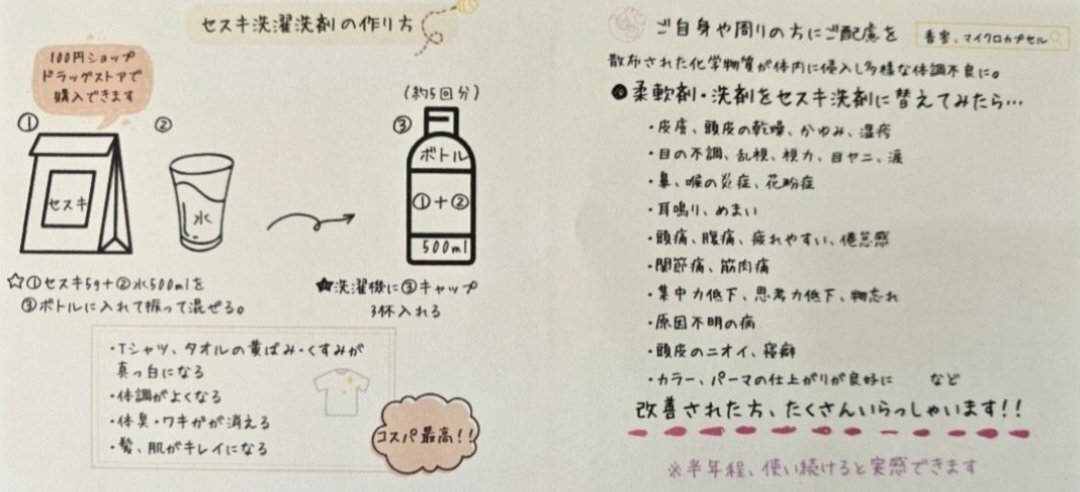 セスキ洗濯洗剤の作り方
100円ショップ
ドラッグストアで
購入できます
①
②
(約5回分)
③
セスキ
水
ボトル
①+②
500ml
☆①セスキ5g+②水500mlを
③ボトルに入れて振って混ぜる。
★洗濯機に③キャップ
3杯入れる
・Tシャツ、タオルの黄ばみ・くすみが
真っ白になる
・体調がよくなる
・体臭・ワキがが消える
・髪、肌がキレイになる
コスパ最高!!
ご自身や周りの方にご配慮を
香害、マイクロカプセル
散布された化学物質が体内に侵入し多様な体調不良に。
●柔軟剤・洗剤をセスキ洗剤に替えてみたら…
・皮膚、頭皮の乾燥、かゆみ、湿疹
・目の不調、乱視、視力、目ヤニ、涙
・鼻、喉の炎症、花粉症
・耳鳴り、めまい
・頭痛、腹痛、疲れやすい、倦怠感
・関節痛、筋肉痛
・集中力低下、思考力低下、物忘れ
・原因不明の病
・頭皮のニオイ、寝癖
・カラー、パーマの仕上がりが良好に など
改善された方、たくさんいらっしゃいます!!
※半年程、使い続けると実感できます